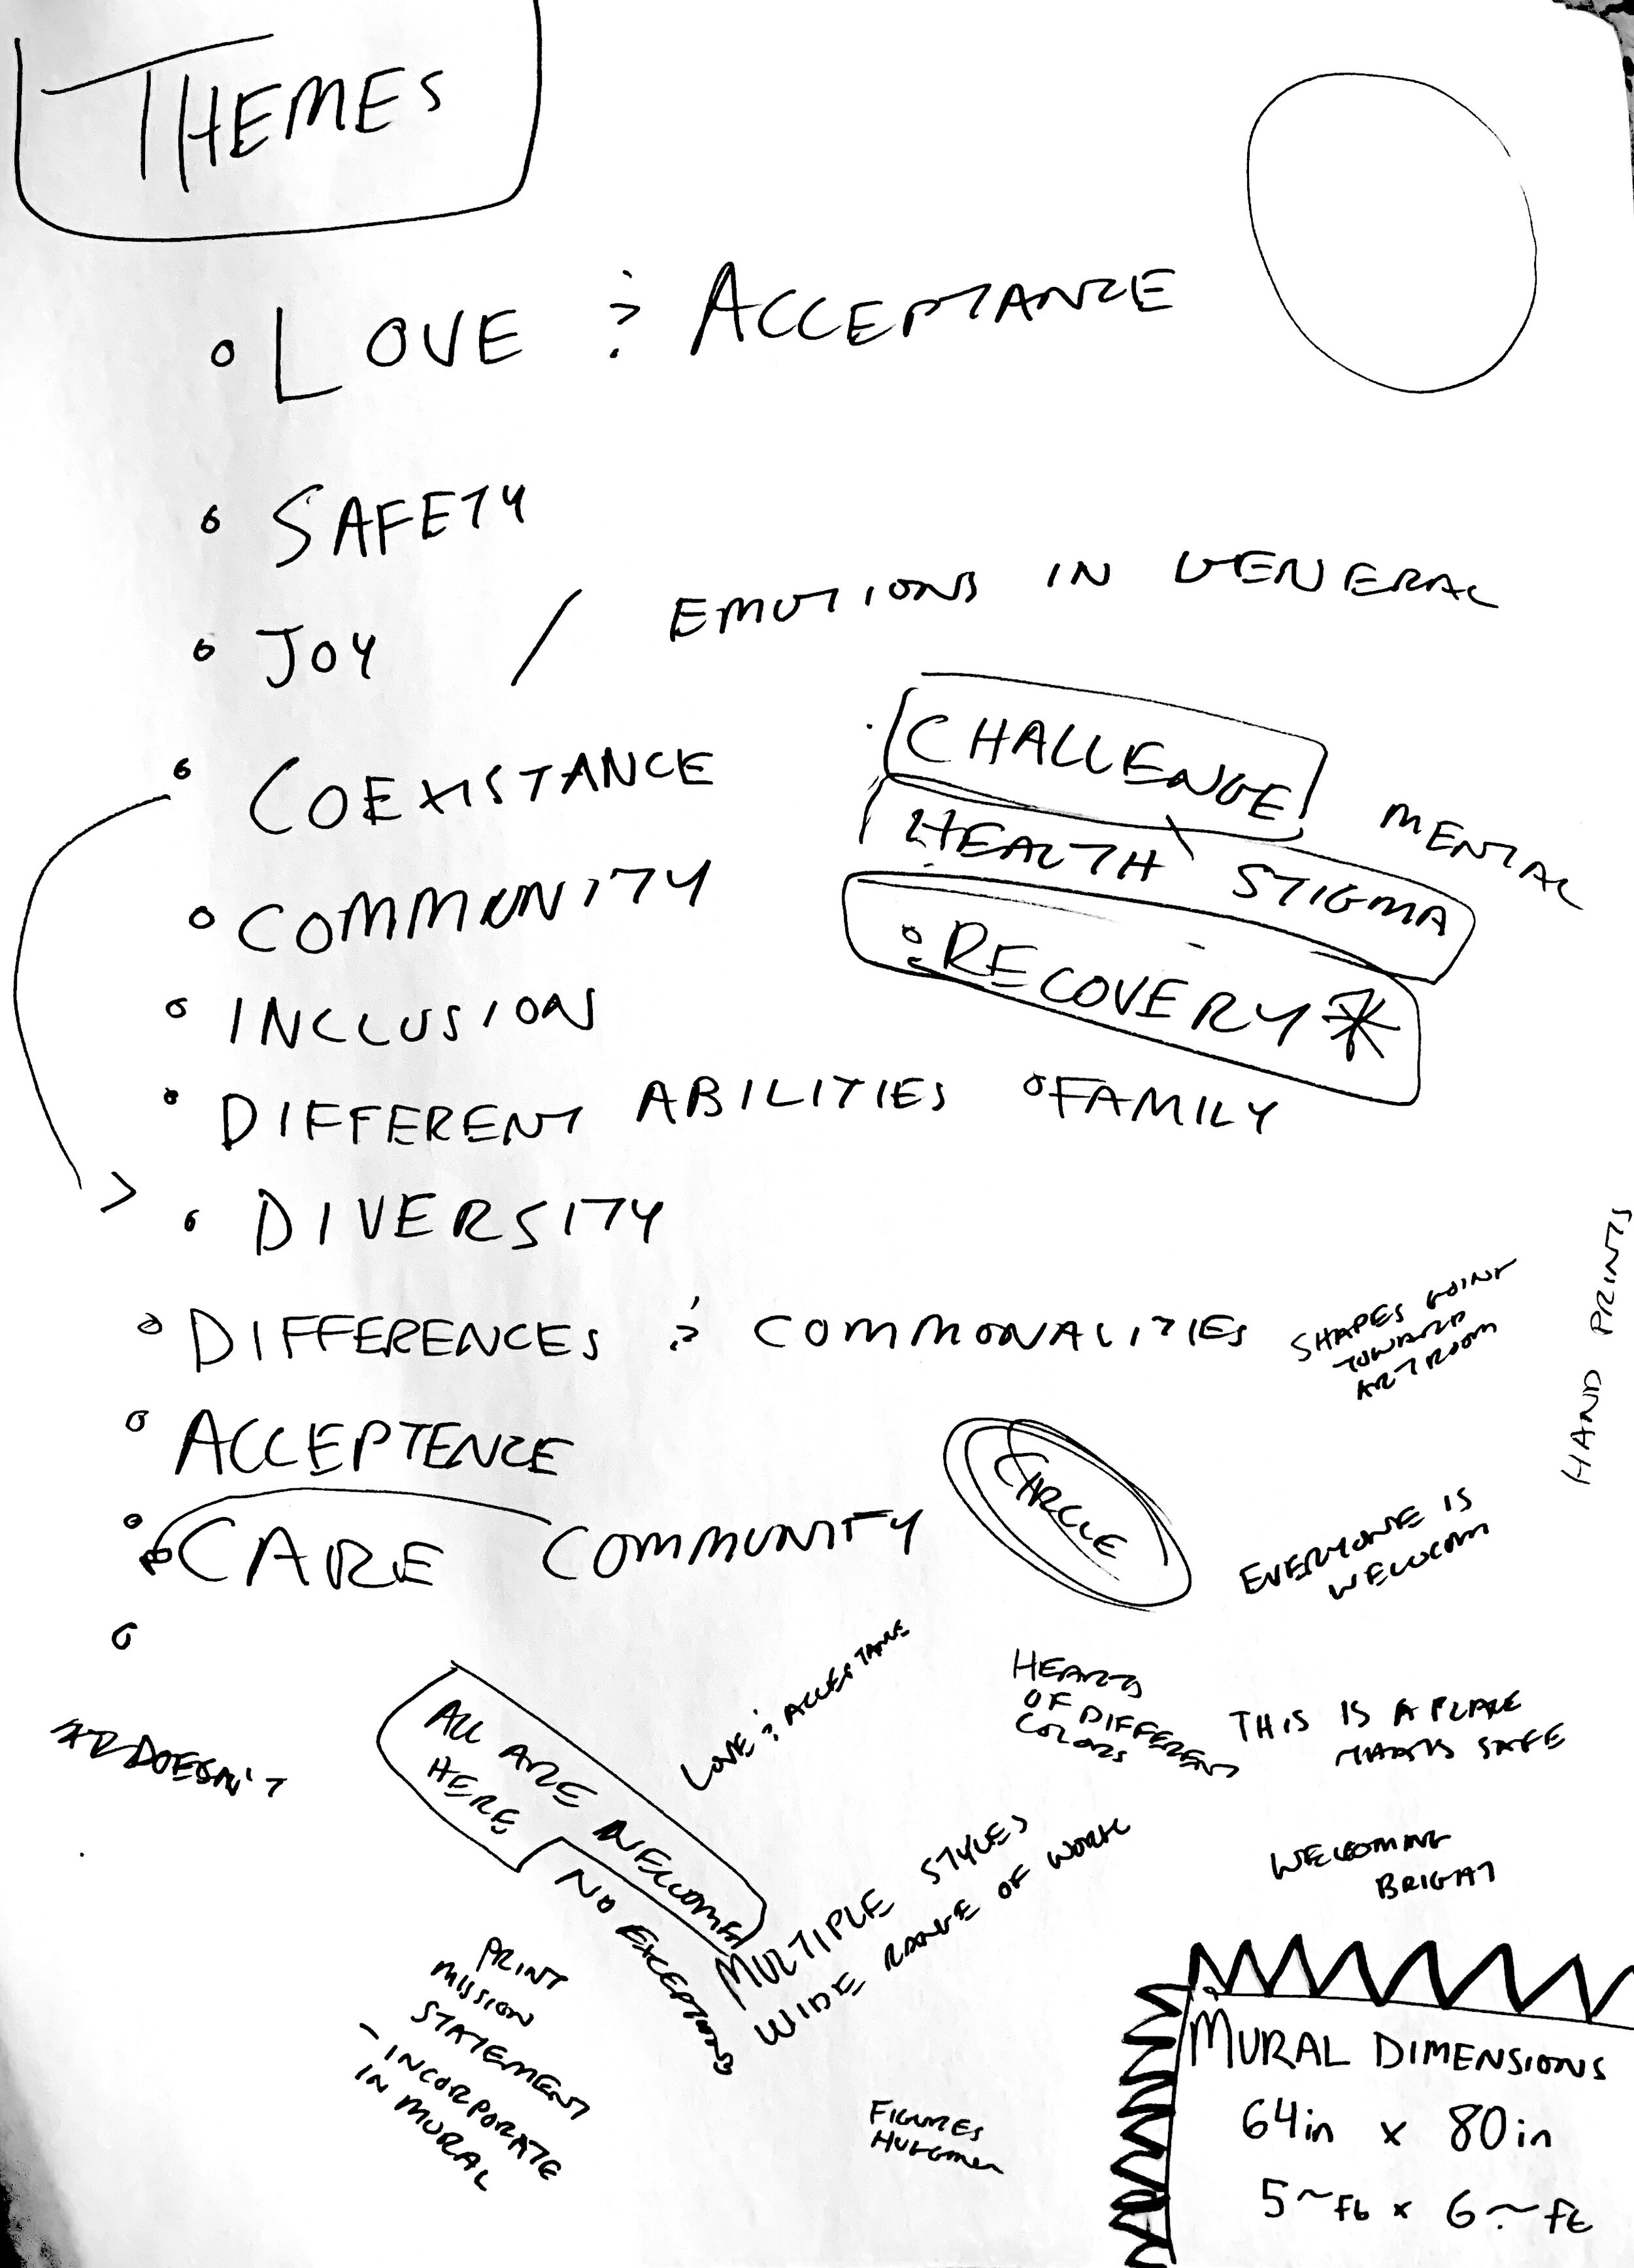 THEMES
• LOVE & ACCEPTANCE
• SAFETY
• JOY / EMOTIONS IN GENERAL
• COEXISTANCE
• COMMUNITY
• INCLUSION
• DIFFERENT ABILITIES
• DIVERSITY
• DIFFERENCES & COMMONALITIES
• ACCEPTENCE
• CARE COMMUNITY
•
• CHALLENGE MENTAL
HEALTH STIGMA
• RECOVERY *
• FAMILY
SHAPES GOING
TOWARD
ART ROOM
HAND PRINTS
CIRCLE
EVERYONE IS
WELCOME
LOVE & ACCEPTANCE
HEARTS
OF DIFFERENT
COLORS
THIS IS A PLACE
SAFE
DOESN'T
ALL ARE WELCOME
HERE
NO EXCEPTIONS
MULTIPLE STYLES
WIDE RANGE OF WORK
WELCOMING
BRIGHT
PRINT
MISSION
STATEMENT
- INCORPORATE
IN MURAL
FIGURES
MURAL DIMENSIONS
64in x 80in
5~ft x 6~ft